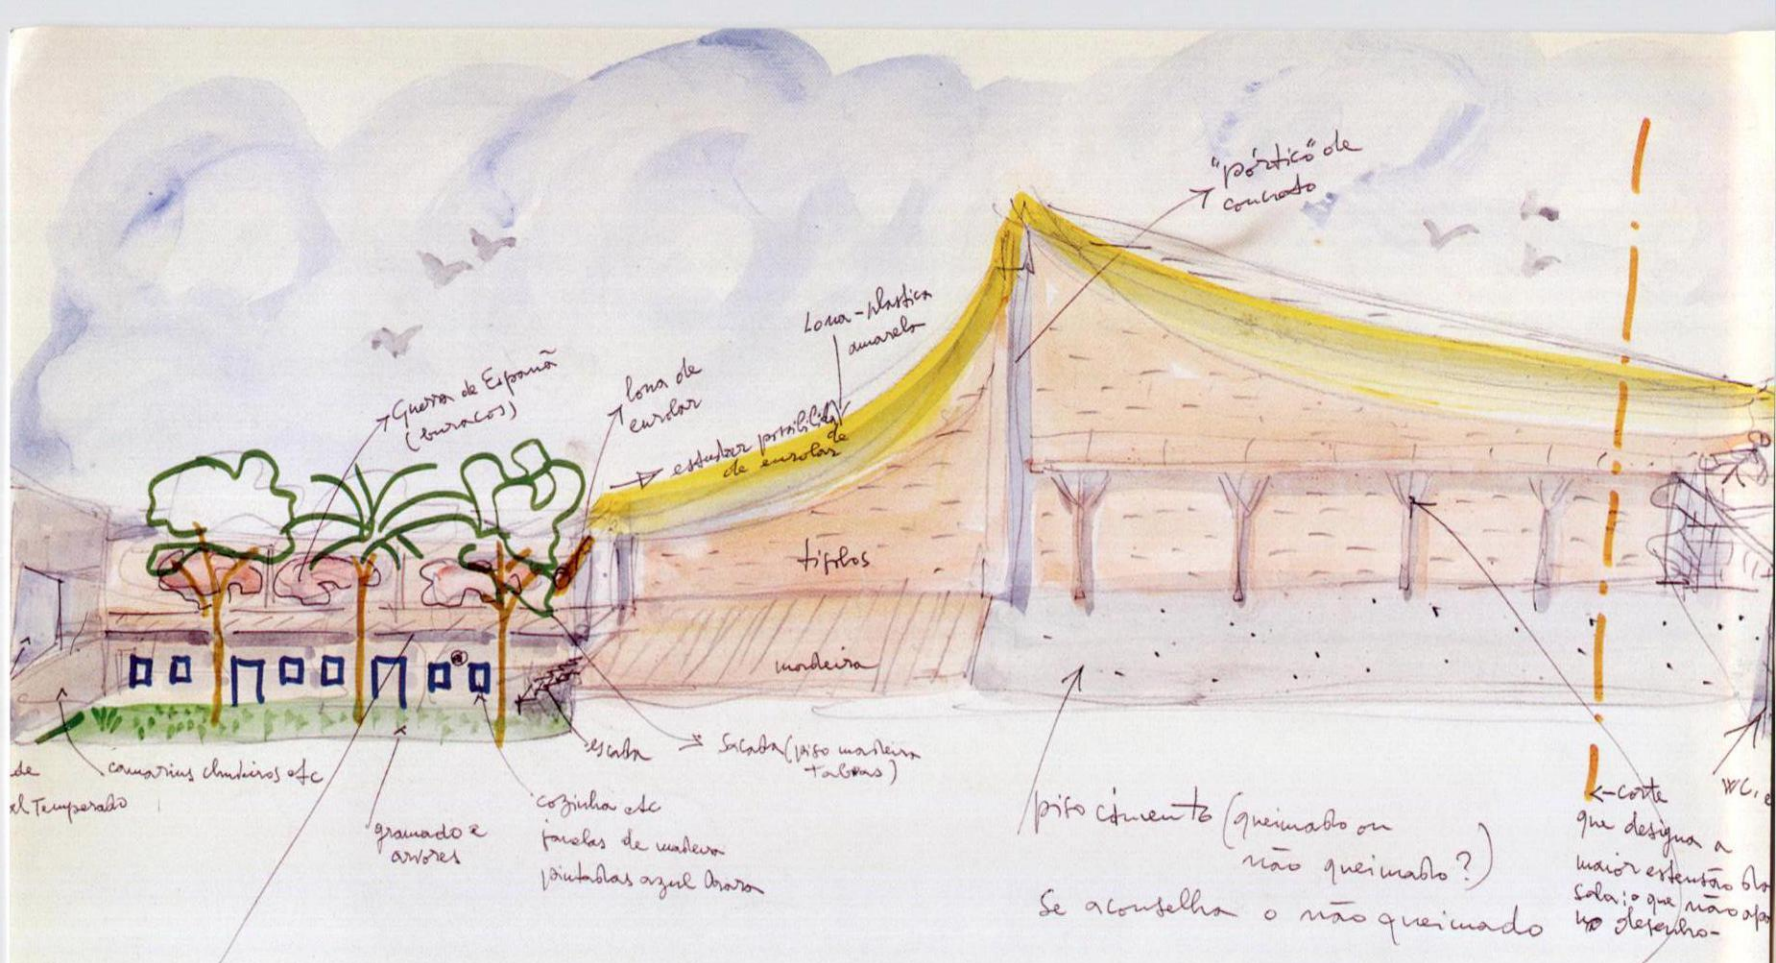 "pórtico" de
concreto
Lona-plastica
amarela
Guerra de Españã
(buracos)
lona de
enrolar
estudar possibilida
de
de enrolar
tijolos
madeira
escada
Sacada (piso madeira
tabuas)
de
el Temperado
camarins chuveiros etc
gramado e
arvores
cozinha etc
janelas de madeira
pintadas azul
piso cimento (queimado ou
não queimado?)
Se aconselha o não queimado
corte
que designa a
maior estensão da
sala; o que não
no desenho-
WC,